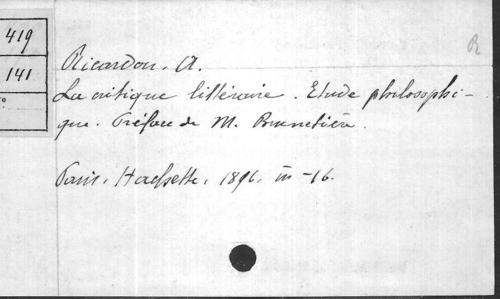 419
141
R
Ricardou, A.
La critique littéraire. Etude philosophi-
que. Préface de M. Brunetière.
Paris, Hachette, 1896, in-16.